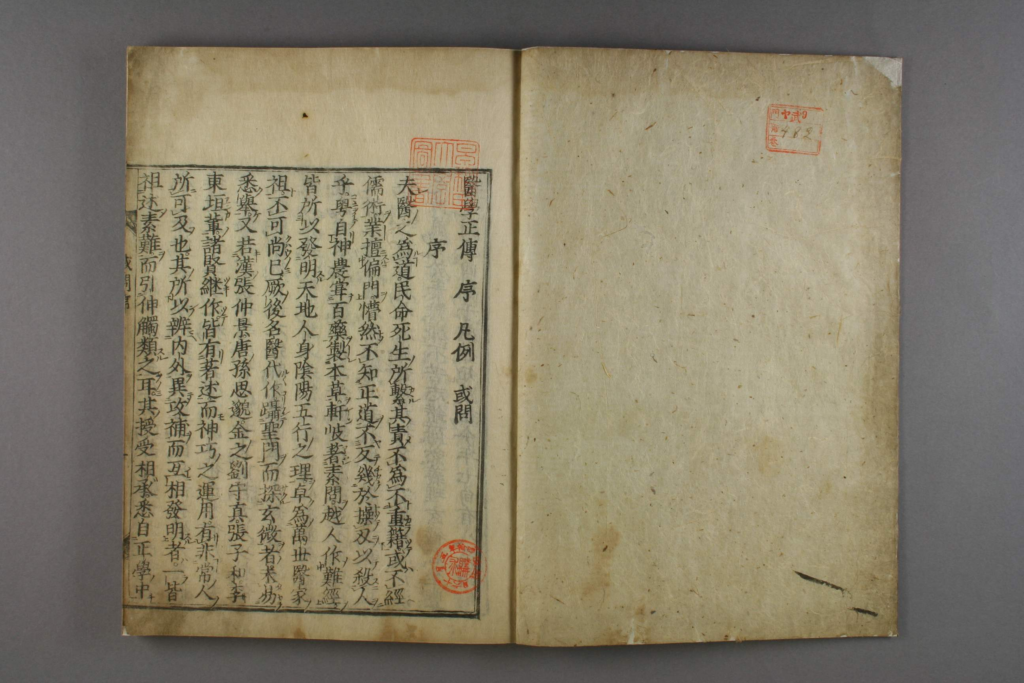 醫學正傳 序 凡例 或問
序
夫醫之爲道民命死生所繫其責不爲不重籍或不經
儒術業擅偏門懵然不知正道不反幾於操刃以殺人
乎粤自神農甞百藥製本草軒岐著素問越人作難經
皆所以發明天地人身陰陽五行之理卓爲萬世醫家
祖不可尚已厥後名醫代作躡聖門而探玄微者未易
悉舉又若漢張仲景唐孫思邈金之劉守真張子和李
東垣輩諸賢繼作皆有著述而神巧之運用有非常人
所可及也其所以辨內外異攻補而互相發明者一皆
祖述素難而引伸觸類之耳其授受相承悉自正學中
482